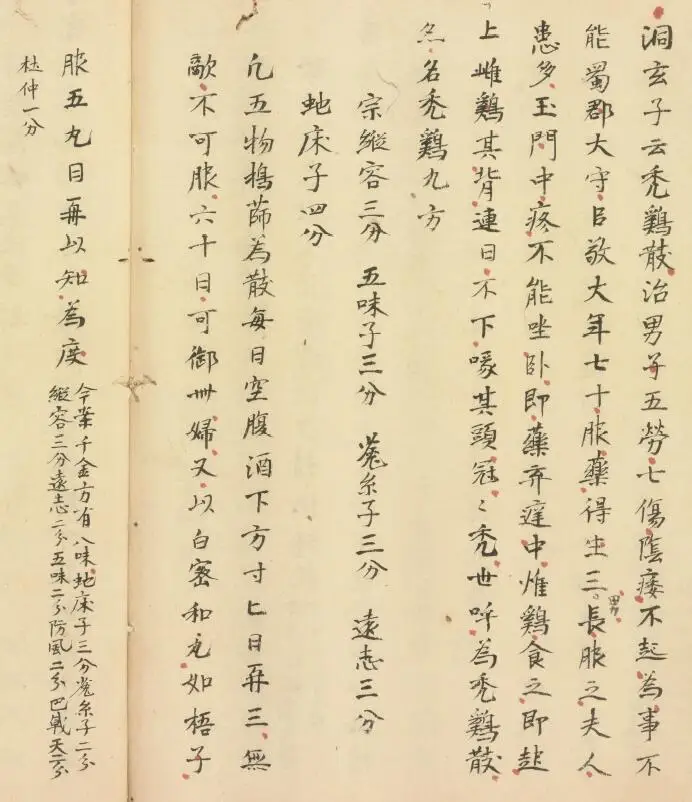 洞玄子云禿鷄散治男子五勞七傷陰痿不起為事不
能蜀郡大守呂敬大年七十服藥得生三男長服之夫人
患多玉門中疼不能坐卧即藥弃庭中雄鷄食之即起
上雌鷄其背連日不下喙其頭冠〻禿世呼為禿鷄散
亦名禿鷄丸方
宗縱容三分 五味子三分 菟糸子三分 遠志三分
虵床子四分
凢五物擣篩為散每日空腹酒下方寸匕日再三無
敵不可服六十日可御卌婦又以白蜜和丸如梧子
服五丸日再以知為度
今案千金方有八味虵床子三分菟糸子二分
縱容三分遠志二分五味二分防風二分巴戟天二分
杜仲一分